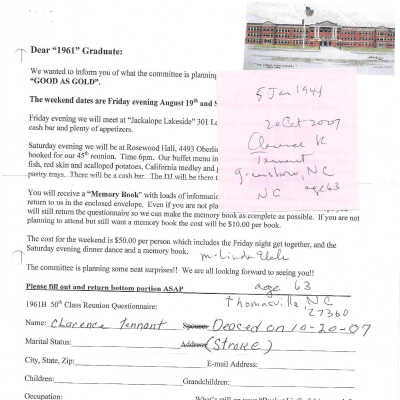 Dear "1961" Graduate:
We wanted to inform you of what the committee is planning
"GOOD AS GOLD".
The weekend dates are Friday evening August 19th and S
Friday evening we will meet at "Jackalope Lakeside" 301 L
cash bar and plenty of appetizers.
Saturday evening we will be at Rosewood Hall, 4493 Oberlin
booked for our 45th reunion. Time 6pm. Our buffet menu in
fish, red skin and scalloped potatoes, California medley and
pastry trays. There will be a cash bar. The DJ will be there
5 Jan 1944
20 Oct 2007
Clarence R
Tennant
Greensboro, NC
NC age 63
You will receive a "Memory Book" with loads of informati
return to us in the enclosed envelope. Even if you are not plan
will still return the questionaire so we can make the memory book as complete as possible. If you are not
planning to attend but still want a memory book the cost will be $10.00 per book.
The cost for the weekend is $50.00 per person which includes the Friday night get together, and the
Saturday evening dinner dance and a memory book. m- Linda
The committee is planning some neat surprises!! We are all looking forward to seeing you!!
Please fill out and return bottom portion ASAP age 63
1961H 50th Class Reunion Questionnaire: Thomasville, NC
27360
Name: Clarence Tennant Spouse Deaced on 10-20-07
Marital Status: Address (Stroke)
City, State, Zip: E-mail Address:
Children: Grandchildren:
Occupation: